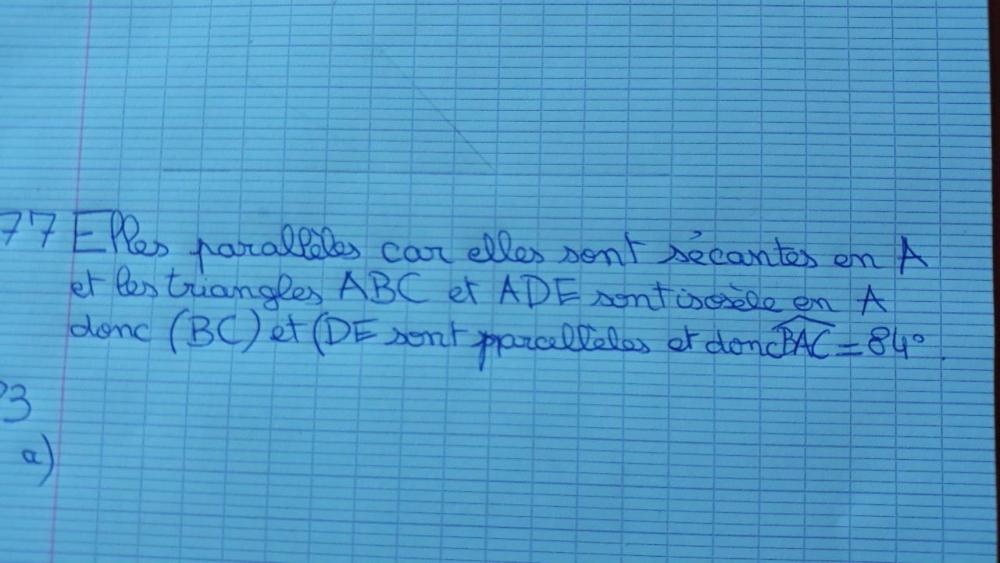 77 Elles parallèles car elles sont sécantes en A
et les triangles ABC et ADE sont isosèle en A
donc (BC) et (DE sont parallèles et donc BAC = 84°.
3
a)